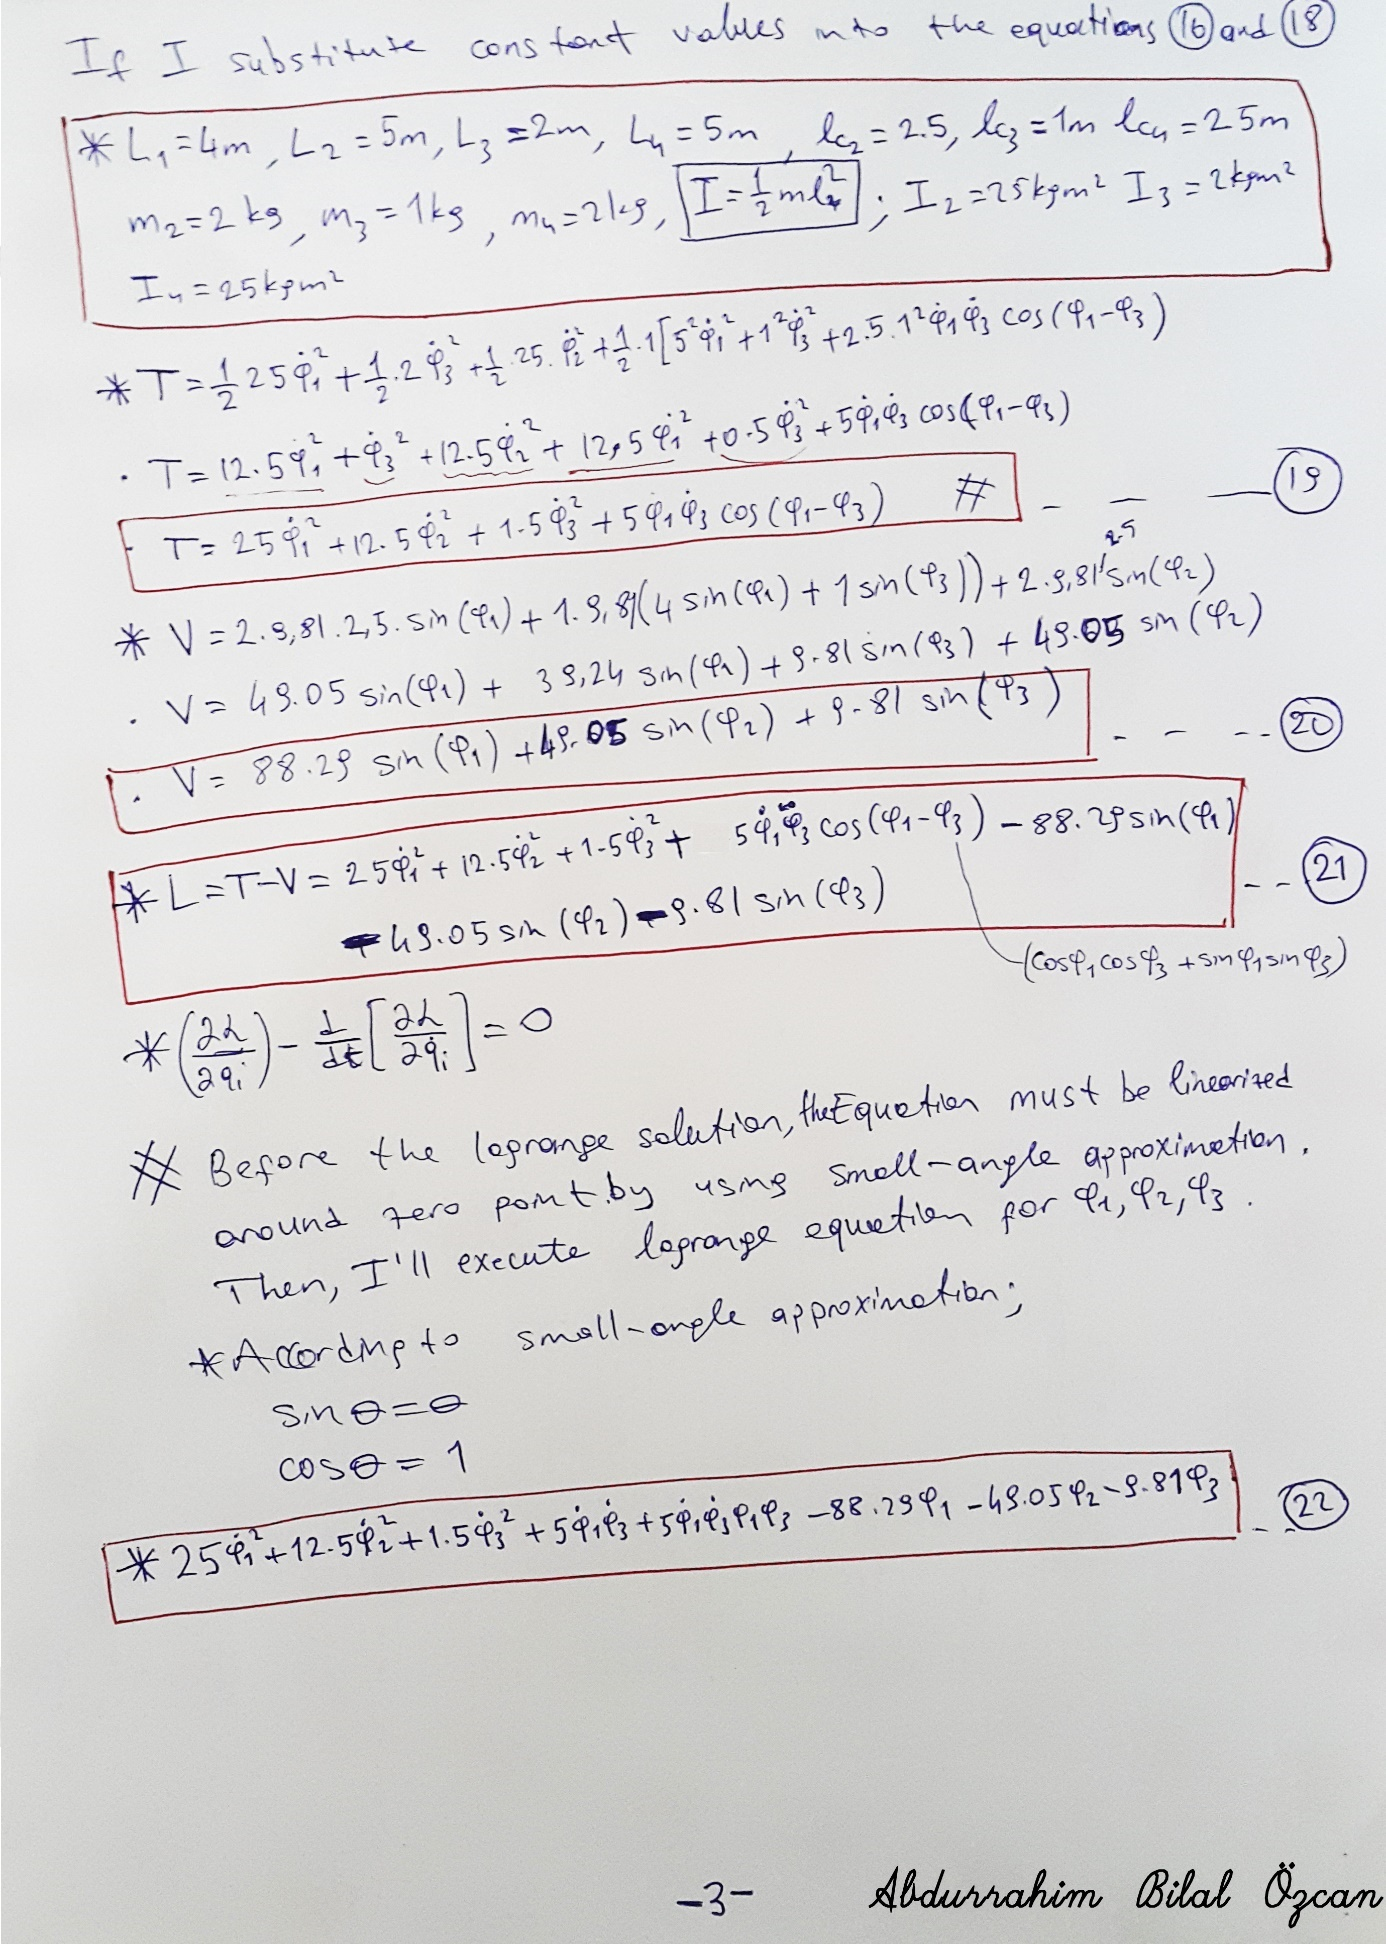 If I substitute constant values into the equations (16) and (18)
* L₁=4m, L₂=5m, L₃=2m, L₄=5m, lc₂=2.5, lc₃=1m lc₄=25m
m₂=2 kg, m₃=1kg, m₄=2kg, I=½ml²; I₂=25kgm² I₃=2kgm²
I₄=25kgm²
* T=½ 25φ̇₁²+½.2φ̇₃²+½.25.φ̇₂²+½.1[5²φ̇₁²+1²φ̇₃²+2.5.1²φ̇₁φ̇₃ cos(φ₁-φ₃)
. T=12.5φ̇₁²+φ̇₃²+12.5φ̇₂²+12,5φ̇₁²+0.5φ̇₃²+5φ̇₁φ̇₃ cos(φ₁-φ₃)
. T=25φ̇₁²+12.5φ̇₂²+1.5φ̇₃²+5φ̇₁φ̇₃ cos(φ₁-φ₃) # - - - (19)
2.5
* V=2.9,81.2,5.sin(φ₁)+1.9,81(4sin(φ₁)+1sin(φ₃))+2.9,81 sin(φ₂)
. V=49.05 sin(φ₁)+39,24 sin(φ₁)+9.81 sin(φ₃)+49.05 sin(φ₂)
. V=88.29 sin(φ₁)+49.05 sin(φ₂)+9.81 sin(φ₃) - - -- (20)
* L=T-V=25φ̇₁²+12.5φ̇₂²+1.5φ̇₃²+5φ̇₁φ̇₃ cos(φ₁-φ₃)-88.29sin(φ₁)
-49.05sin(φ₂)-9.81 sin(φ₃) -- (21)
(cosφ₁cosφ₃+sinφ₁sinφ₃)
* (∂L/∂qᵢ)-d/dt[∂L/∂q̇ᵢ]=0
# Before the lagrange solution, the Equation must be linearized
around zero point.by using small-angle approximation.
Then, I'll execute lagrange equation for φ₁,φ₂,φ₃.
* According to small-angle approximation;
sinθ=θ
cosθ=1
* 25φ̇₁²+12.5φ̇₂²+1.5φ̇₃²+5φ̇₁φ̇₃+5φ̇₁φ̇₃φ₁φ₃-88.29φ₁-49.05φ₂-9.81φ₃ -- (22)
-3-
Abdurrahim Bilal Özcan